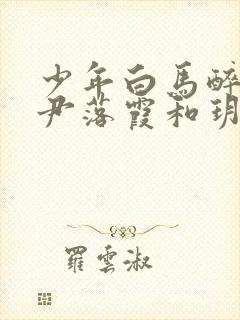 少年白馬醉
尹落霞和玥
羅雲淑